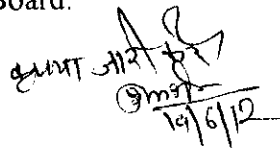 Board.
कृपया जारी करें
19/6/12